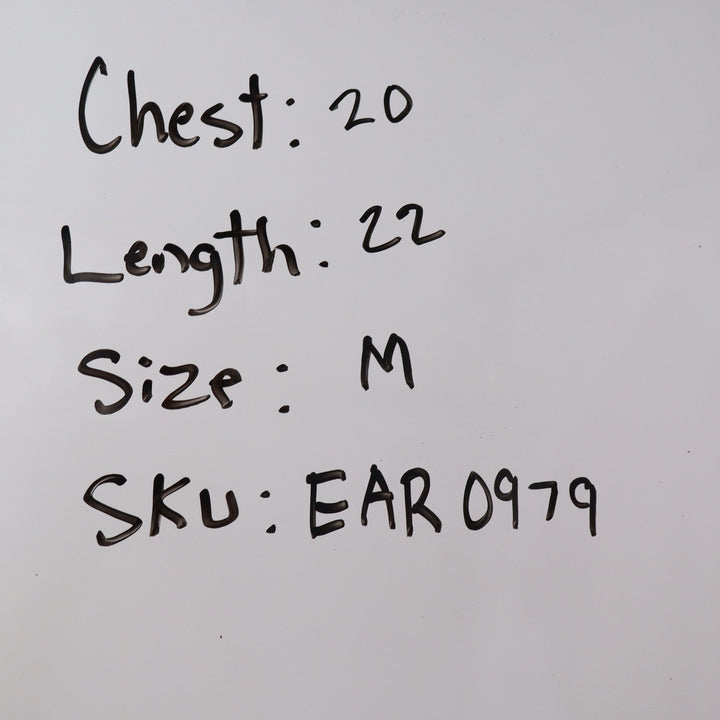 Chest: 20
Length: 22
Size: M
SKU: EAR0979